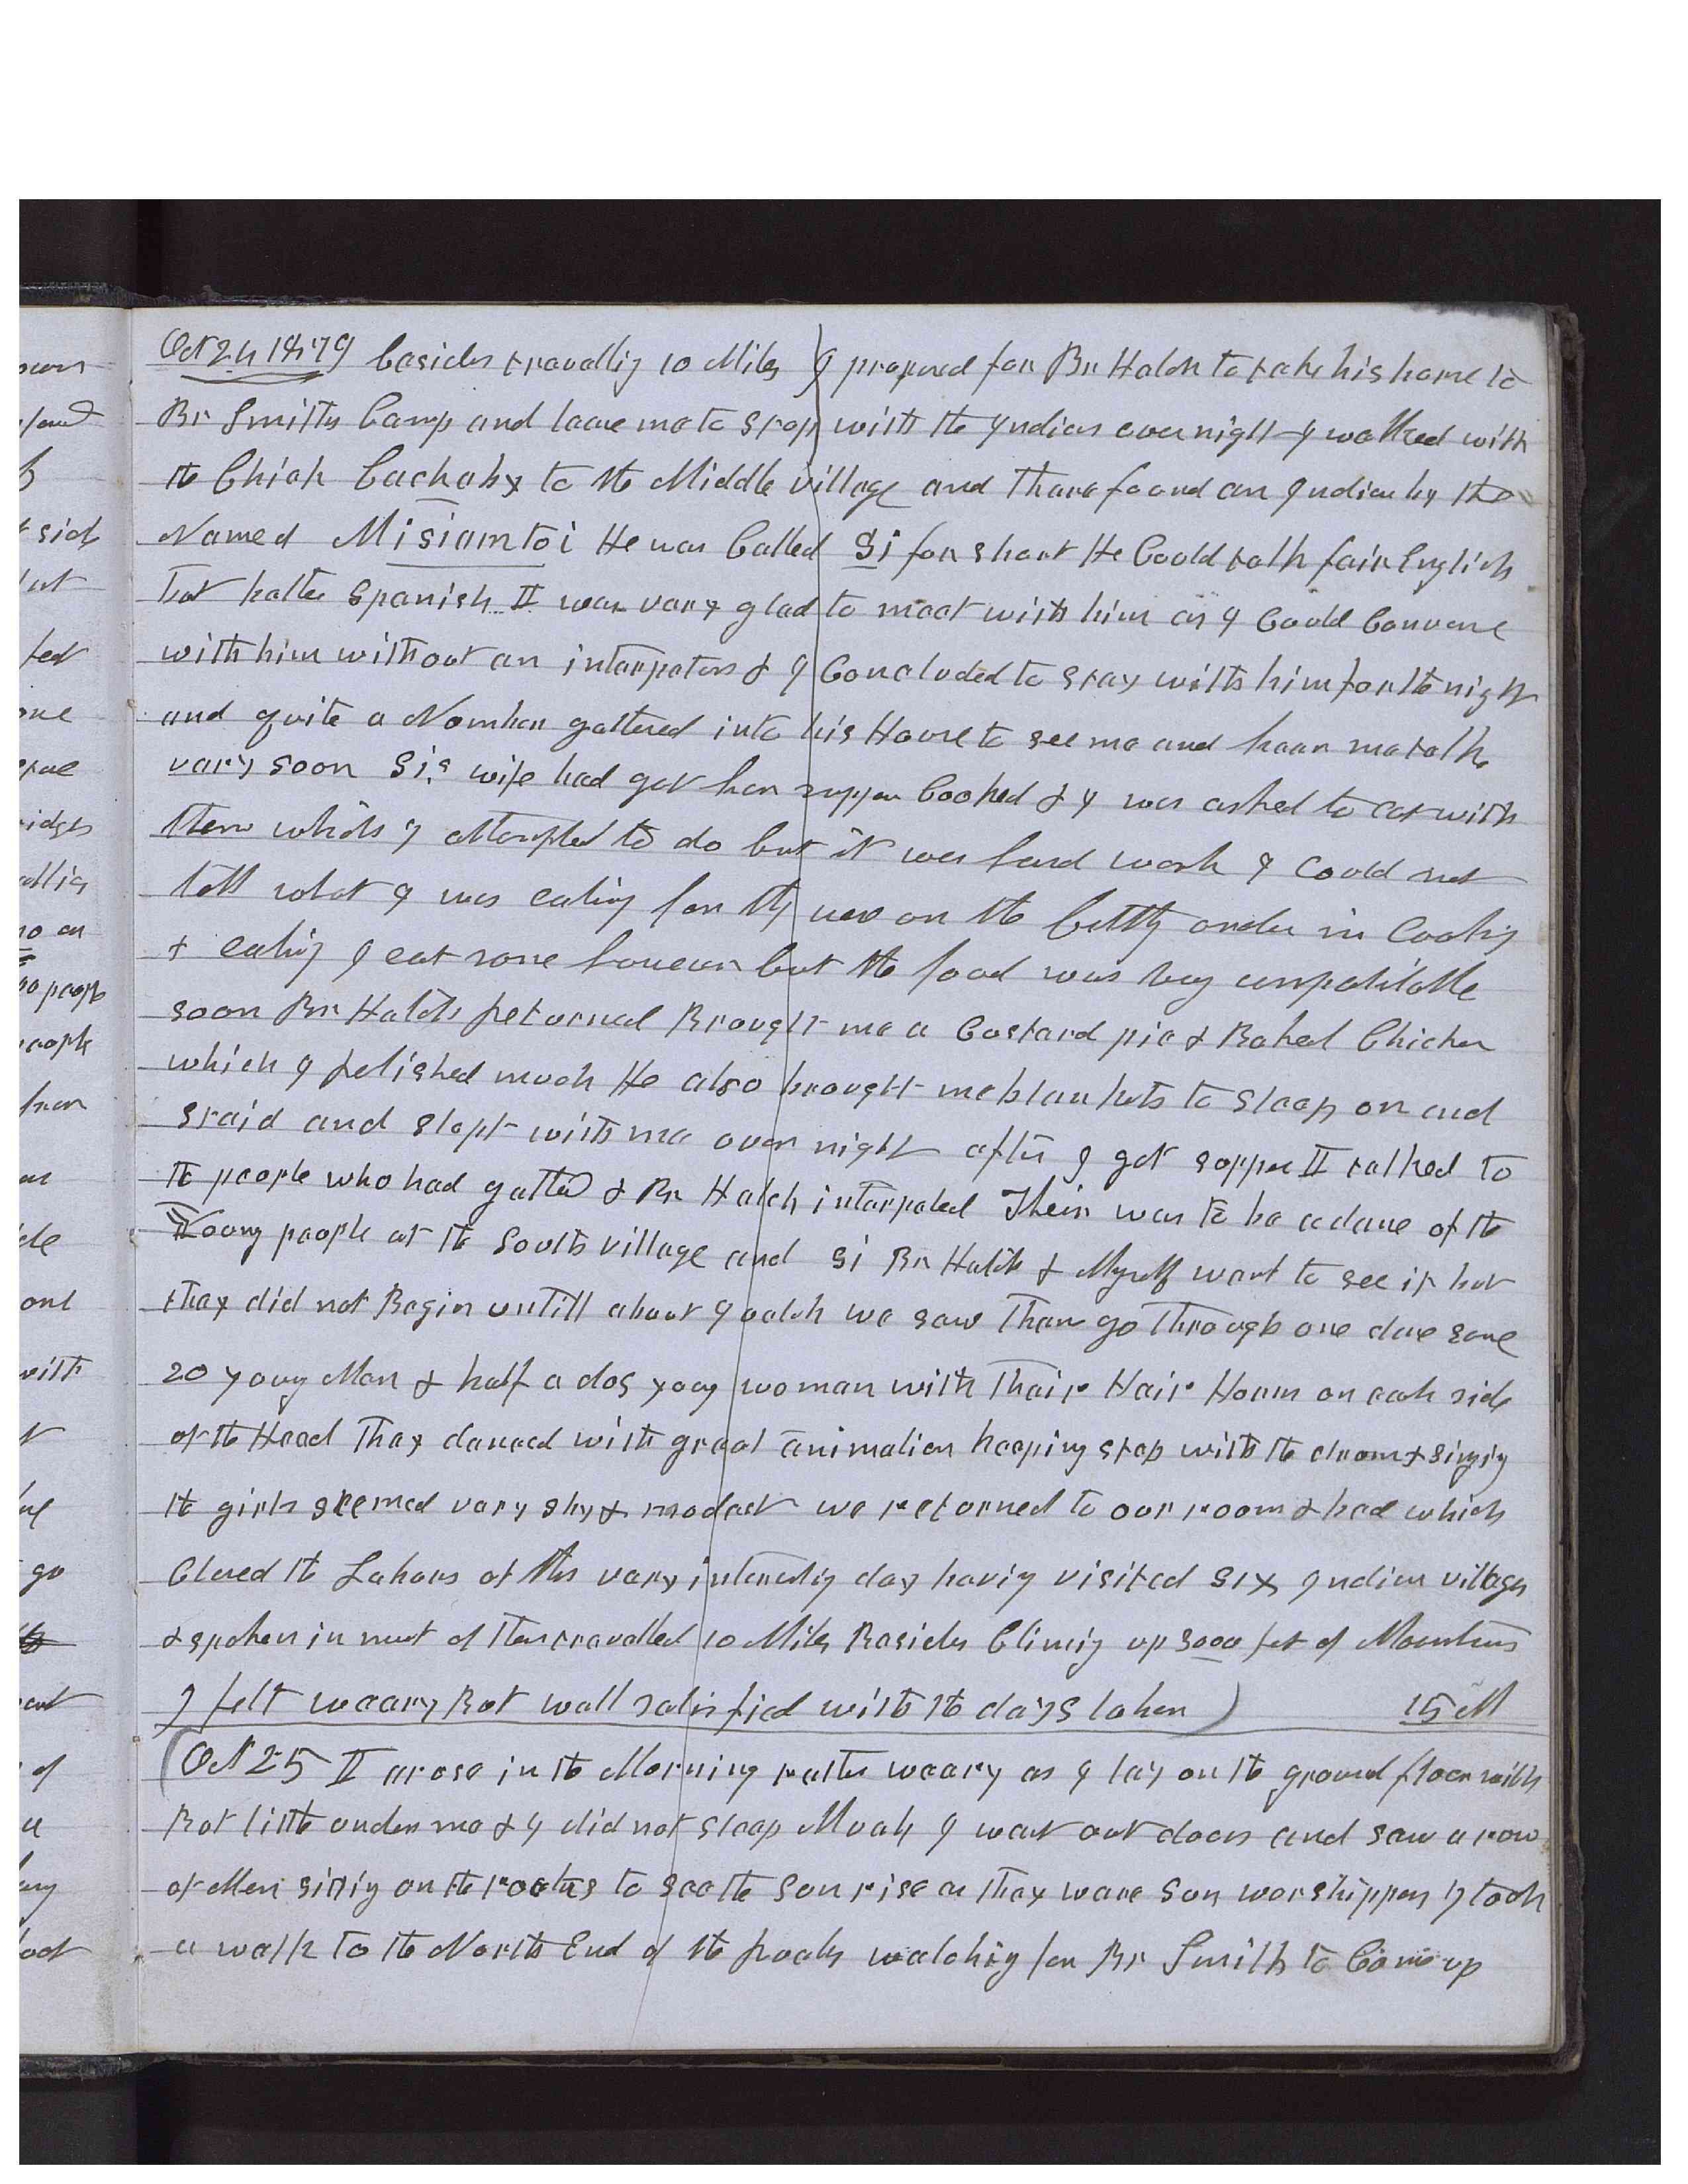 Oct 24 1879 besides travelling 10 Miles I proposed for Br Hatch to take his horse to
Br Smiths Camp and leave me to stop with the Indians over night I walked with
the Chief Cachoky to the Middle village and there found an Indian by the
Named Misiamtoi He was Called Si for short He Could talk fair English
but better Spanish I was vary glad to meet with him as I Could Convere
with him without an interpeter & I Concluded to stay with him for the night
and quite a Number gathered into his House to see me and hear me talk
vary soon Si,s wife had got her supper Cooked & I was asked to eat with
them which I attempted to do but it was hard work I could not
tell what I was eating for they ware on the filthy order in Cooking
& eating I eat some however but the food was vary unpalatable
soon Br Hatch returned Brought me a Custard pie & Baked Chicken
which I relished much He also brought me blankets to sleep on and
staid and slept with me over night after I got supper I talked to
the people who had gathered & Br Hatch interpeted Their was to be a dance of the
Young people at the South village and Si Br Hatch & Myself went to see it but
they did not Begin untill about 9 oclok we saw them go through one dance some
20 young Men & half a dos young women with their Hair Horns on each side
of the Head They danced with great animation keeping step with the drum & singing
the girls seemed vary shy & modest we returned to our room & bed which
Closed the Labors of this vary interesting day having visited six Indian villages
& spoken in most of them travelled 10 Miles Besides Climing up 3000 feet of Mountains
I felt weary But well satisfied with the days labor 15 M
Oct 25 I arose in the Morning rather weary as I lay on the ground floor with
But little under me & I did not sleep Much I went out doors and saw a row
of Men siting on the rocks to see the Sun rise as they ware Sun worshippers I took
a walk to the North End of the rocks watching for Br Smith to Come up